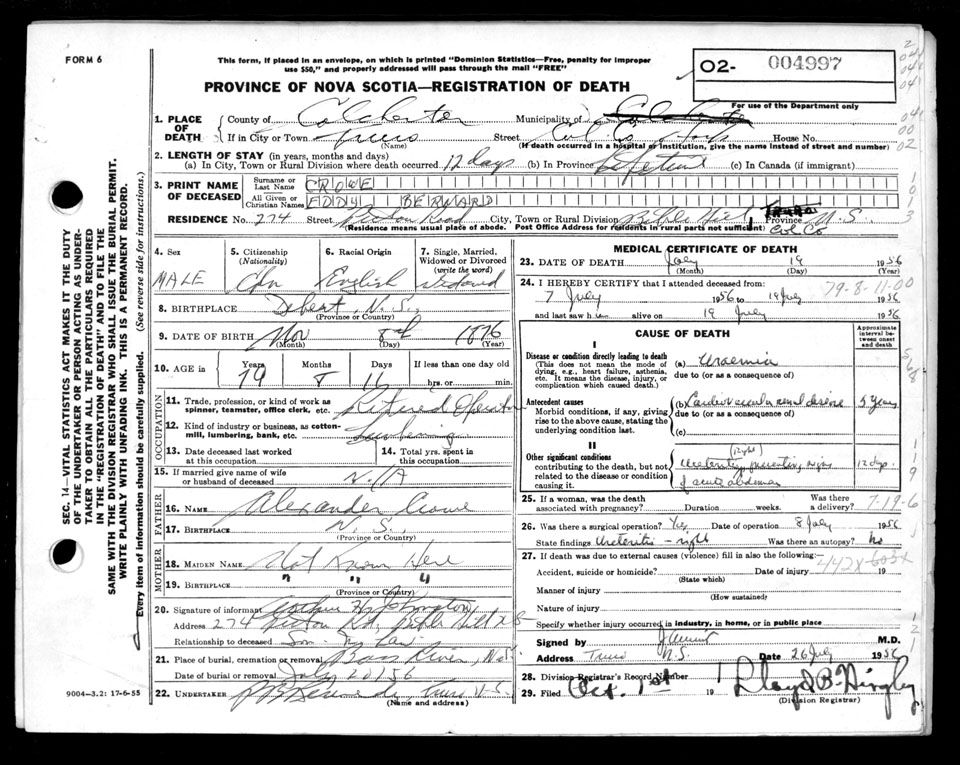 FORM 6
This form, if placed in an envelope, on which is printed "Dominion Statistics—Free, penalty for improper
use $50," and properly addressed will pass through the mail "FREE"
O2- 004997
For use of the Department only
PROVINCE OF NOVA SCOTIA—REGISTRATION OF DEATH
1. PLACE OF DEATH
County of Colchester Municipality of Colchester
If in City or Town Truro Street Col Co Hosp House No.
(Name) (If death occurred in a hospital or institution, give the name instead of street and number)
2. LENGTH OF STAY (in years, months and days)
(a) In City, Town or Rural Division where death occurred. 12 days (b) In Province Lifetime (c) In Canada (if immigrant)
3. PRINT NAME OF DECEASED
Surname or Last Name CROWE
All Given or Christian Names EDDY BERNARD
RESIDENCE No. 274 Street Pictou Road City, Town or Rural Division Bible Hill, Truro Province N.S.
Col Co
(Residence means usual place of abode. Post Office Address for residents in rural parts not sufficient)
4. Sex MALE
5. Citizenship (Nationality) Cdn
6. Racial Origin English
7. Single, Married, Widowed or Divorced (write the word) Widowed
8. BIRTHPLACE Debert N.S.
(Province or Country)
9. DATE OF BIRTH Nov 8th 1876
(Month) (Day) (Year)
10. AGE in Years 79 Months 8 Days If less than one day old
hrs. or min.
OCCUPATION
11. Trade, profession, or kind of work as
spinner, teamster, office clerk, etc. Retired Operator
12. Kind of industry or business, as cotton-
mill, lumbering, bank, etc. Lumbering
13. Date deceased last worked
at this occupation
14. Total yrs. spent in
this occupation
15. If married give name of wife
or husband of deceased N/A
FATHER
16. NAME Alexander Crowe
17. BIRTHPLACE N.S.
(Province or Country)
MOTHER
18. MAIDEN NAME Not Known Here
19. BIRTHPLACE " " "
(Province or Country)
20. Signature of informant Arthur H Johnston
Address 274 Pictou Rd, Bible Hill N.S
Relationship to deceased Son In Law
21. Place of burial, cremation or removal Bass River, N.S.
Date of burial or removal July 20/56
22. UNDERTAKER Truro N.S.
(Name and address)
9004-3.2: 17-6-55
MEDICAL CERTIFICATE OF DEATH
23. DATE OF DEATH July 19 1956
(Month) (Day) (Year)
24. I HEREBY CERTIFY that I attended deceased from: 79-8-11-00
7 July 1956 to 19 July 1956
and last saw him alive on 19 July 1956
CAUSE OF DEATH
Approximate interval between onset and death
I
Disease or condition directly leading to death
(This does not mean the mode of dying, e.g., heart failure, asthenia, etc. It means the disease, injury, or complication which caused death.)
(a) Uraemia
due to (or as a consequence of)
Antecedent causes
Morbid conditions, if any, giving rise to the above cause, stating the underlying condition last.
(b) Cardiovascular renal disease 5 years
due to (or as a consequence of)
(c)
II
Other significant conditions
contributing to the death, but not related to the disease or condition causing it.
(right)
Ureteritis presenting signs
of acute abdomen
12 days
25. If a woman, was the death
associated with pregnancy? Duration weeks. Was there a delivery? 7-19-6
26. Was there surgical operation? Yes Date of operation 8 July 1956
State findings Ureteritis - right Was there an autopsy? No
27. If death was due to external causes (violence) fill in also the following:—
Accident, suicide or homicide? Date of injury 19
(State which) 442X
Manner of injury
(How sustained)
Nature of injury
Specify whether injury occurred in industry, in home, or in public place
Signed by M.D.
Address Truro N.S. Date 26 July 1956
28. Division Registrar's Record Number 1
29. Filed Oct. 1st 19 Lloyd B. Hingley
(Division Registrar)
SEC. 14—VITAL STATISTICS ACT MAKES IT THE DUTY
OF THE UNDERTAKER OR PERSON ACTING AS UNDER-
TAKER TO OBTAIN ALL THE PARTICULARS REQUIRED
IN THE "REGISTRATION OF DEATH" AND TO FILE THE
SAME WITH THE DIVISION REGISTRAR WHO SHALL ISSUE THE BURIAL PERMIT.
WRITE PLAINLY WITH UNFADING INK. THIS IS A PERMANENT RECORD.
Every item of information should be carefully supplied. (See reverse side for instructions.)